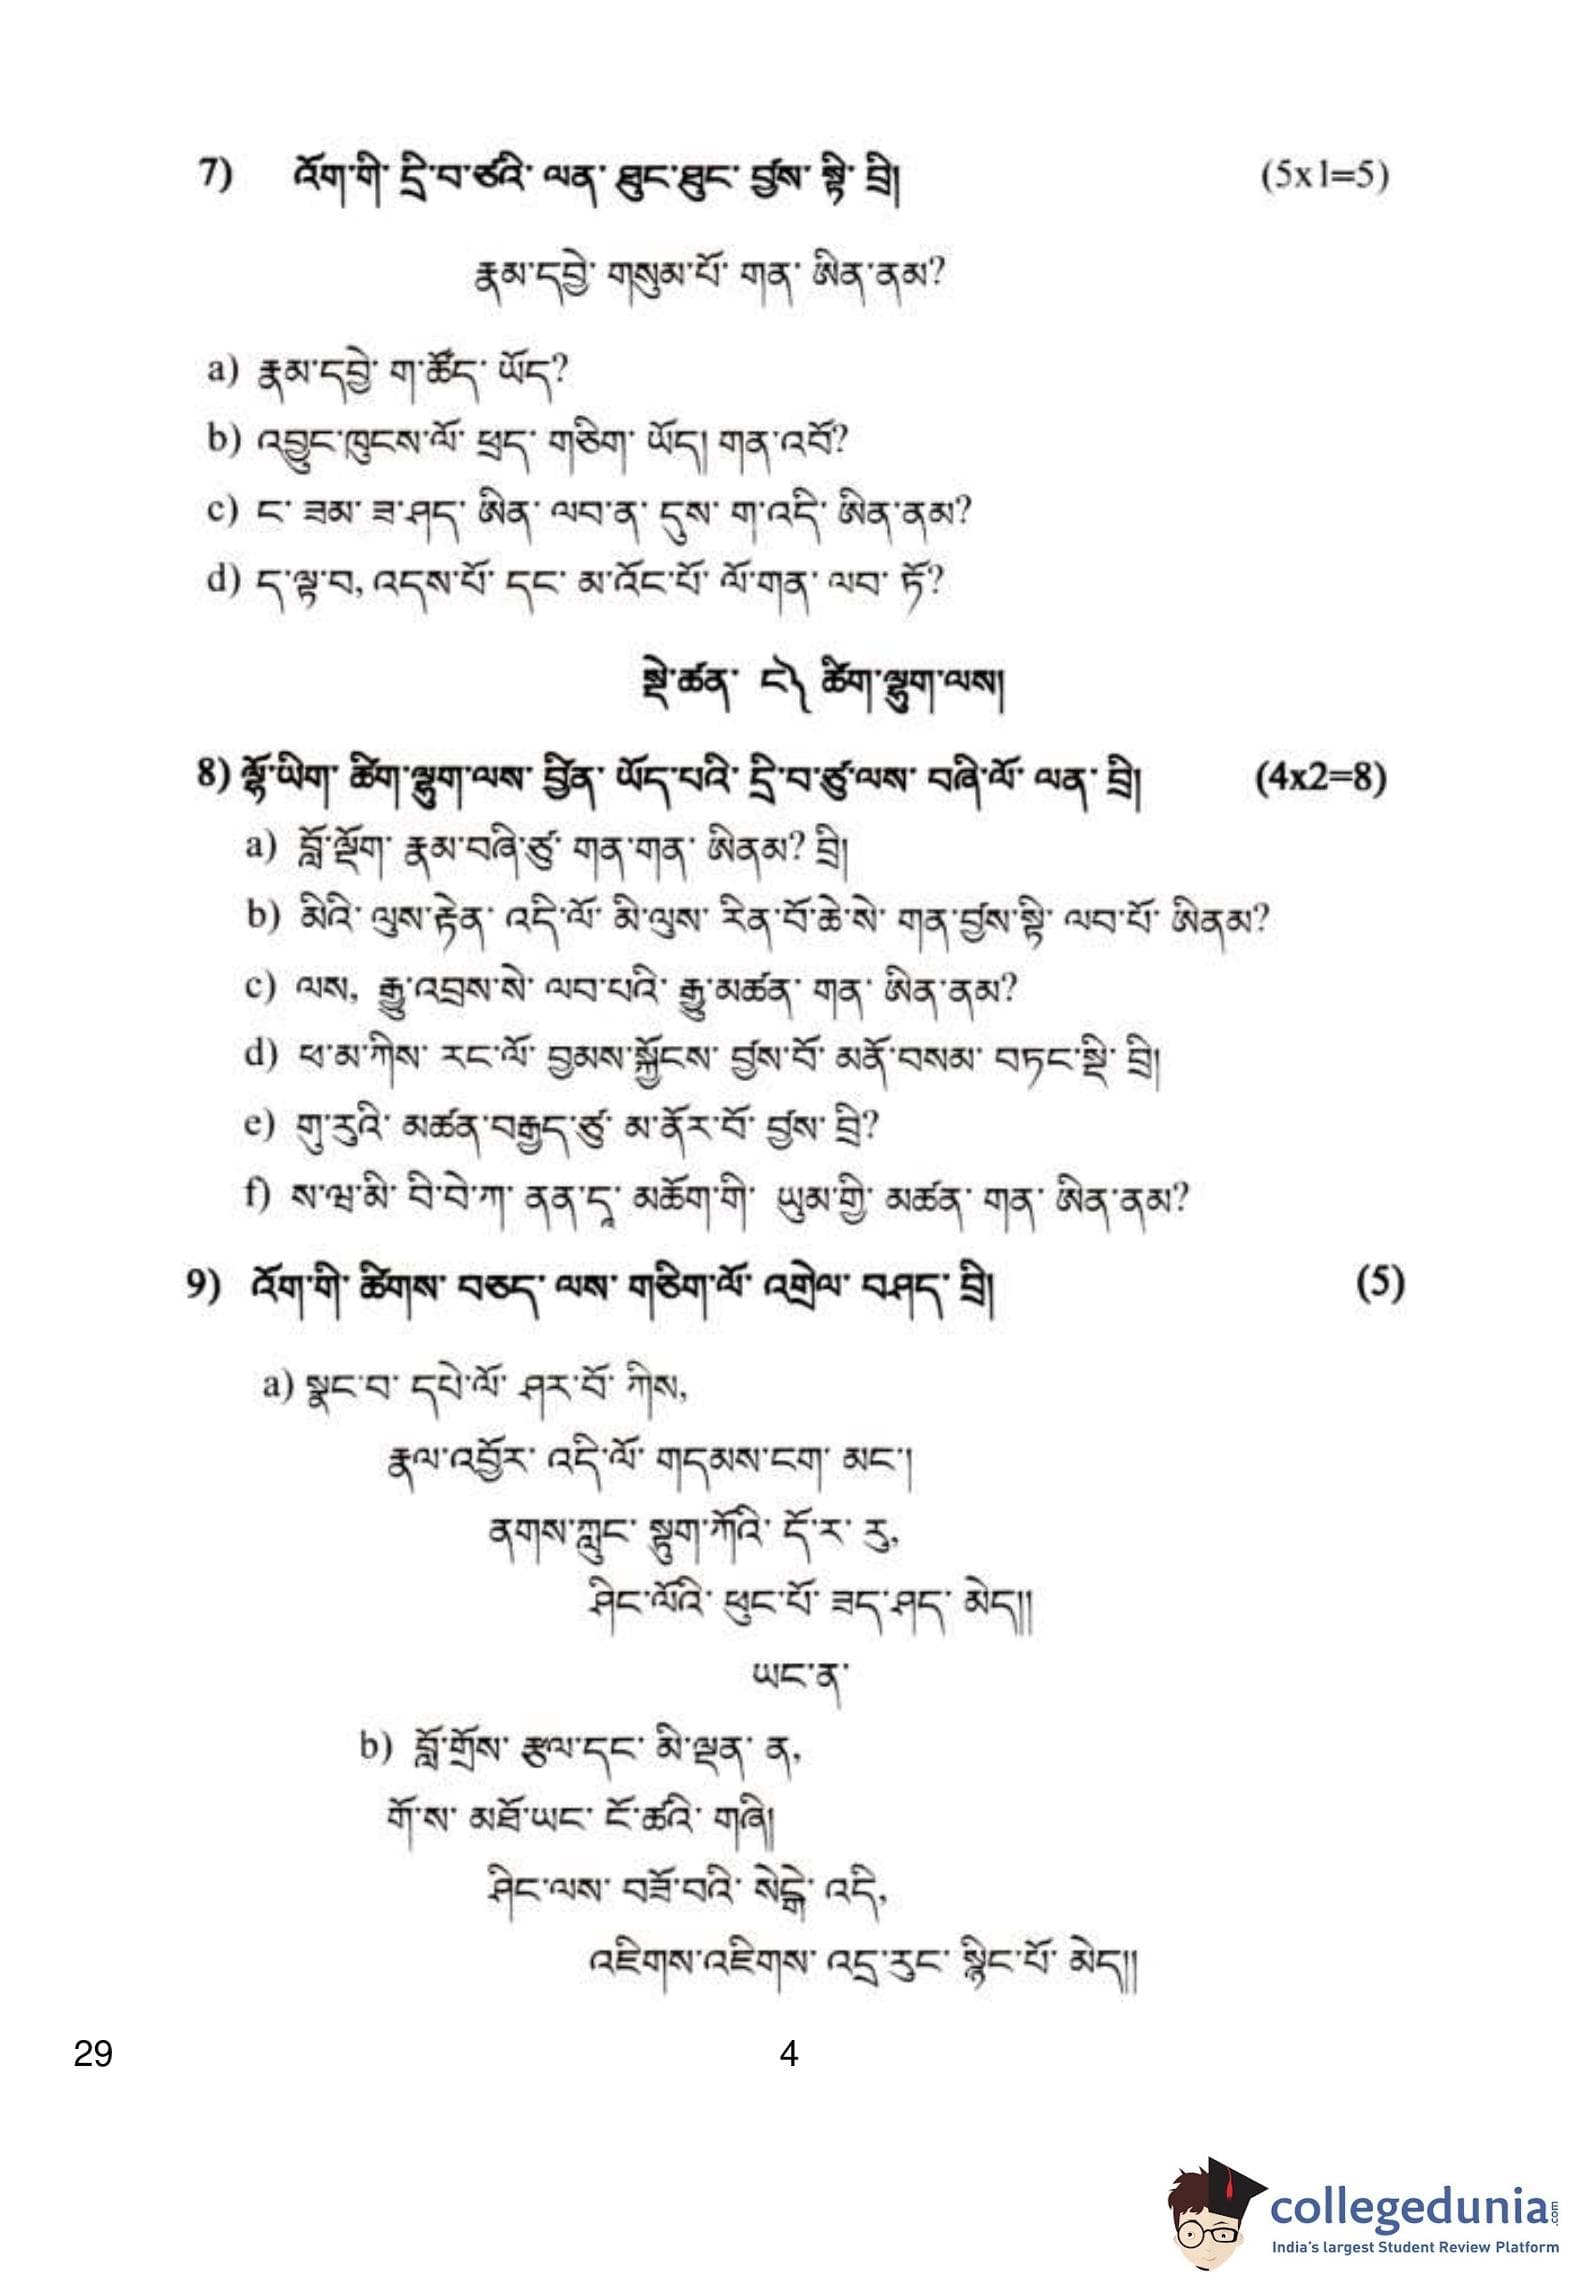 7) འོག་གི་ དྲི་བ་ཙའི་ ལན་ ཐུང་ཐུང་ བྱས་ སྟི་ བྲི། (5x1=5)
རྣམ་དབྱེ་ གསུམ་པོ་ གན་ ཨིན་ནམ?
a) རྣམ་དབྱེ་ ག་ཚོད་ ཡོད?
b) འབྱུང་ཁུངས་ལོ་ ཕྲད་ གཅིག་ ཡོད། གན་འབོ?
c) ང་ ཟམ་ ཟ་ཤད་ ཨིན་ ལབ་ན་ དུས་ ག་འདི་ ཨིན་ནམ?
d) ད་ལྟ་བ, འདས་པོ་ དང་ མ་འོང་པོ་ ལོ་གན་ ལབ་ ཏོ?
སྡེ་ཚན་ ང༽ ཚིག་ལྷུག་ལས།
8) ལྷོ་ཡིག་ ཚིག་ལྷུག་ལས་ བྱིན་ ཡོད་པའི་ དྲི་བ་ཙུ་ལས་ བཞི་ལོ་ ལན་ བྲི། (4x2=8)
a) བློ་ལྡོག་ རྣམ་བཞི་ཙུ་ གན་གན་ ཨིནམ? བྲི།
b) མིའི་ ལུས་རྟེན་ འདི་ལོ་ མི་ལུས་ རིན་པོ་ཆེ་སེ་ གན་བྱས་སྟི་ ལབ་པོ་ ཨིནམ?
c) ལས, རྒྱུ་འབྲས་སེ་ ལབ་པའི་ རྒྱུ་མཚན་ གན་ ཨིན་ནམ?
d) ཕ་མ་ཀིས་ རང་ལོ་ བྱམས་སྐྱོངས་ བྱས་བོ་ མནོ་བསམ་ བཏང་སྡི་ བྲི།
e) གུ་རུའི་ མཚན་བརྒྱད་ཙུ་ མ་ནོར་བོ་ བྱས་ བྲི?
f) ས་ཝ་མི་ བི་བེ་ཀ་ ནན་དཱ་ མཆོག་གི་ ཡུམ་གྱི་ མཚན་ གན་ ཨིན་ནམ?
9) འོག་གི་ ཚིགས་ བཅད་ ལས་ གཅིག་ལོ་ འགྲེལ་ བཤད་ བྲི། (5)
a) སྣང་བ་ དཔེ་ལོ་ ཤར་བོ་ ཀིས,
རྣལ་འབྱོར་ འདི་ལོ་ གདམས་ངག་ མང་།
ནགས་ཀླུང་ སྟུག་ཀོའི་ དོ་ར་ རུ,
ཤིང་ལོའི་ ཕུང་པོ་ ཟད་ཤད་ མེད།།
ཡང་ན་
b) བློ་གྲོས་ རྩལ་དང་ མི་ལྡན་ ན,
གོ་ས་ མཐོ་ཡང་ ངོ་ཚའི་ གཞི།
ཤིང་ལས་ བཟོ་བའི་ སེངྒེ་ འདི,
འཇིགས་འཇིགས་ འདྲ་རུང་ སྙིང་པོ་ མེད།།
29 4
collegedunia.com
India's largest Student Review Platform